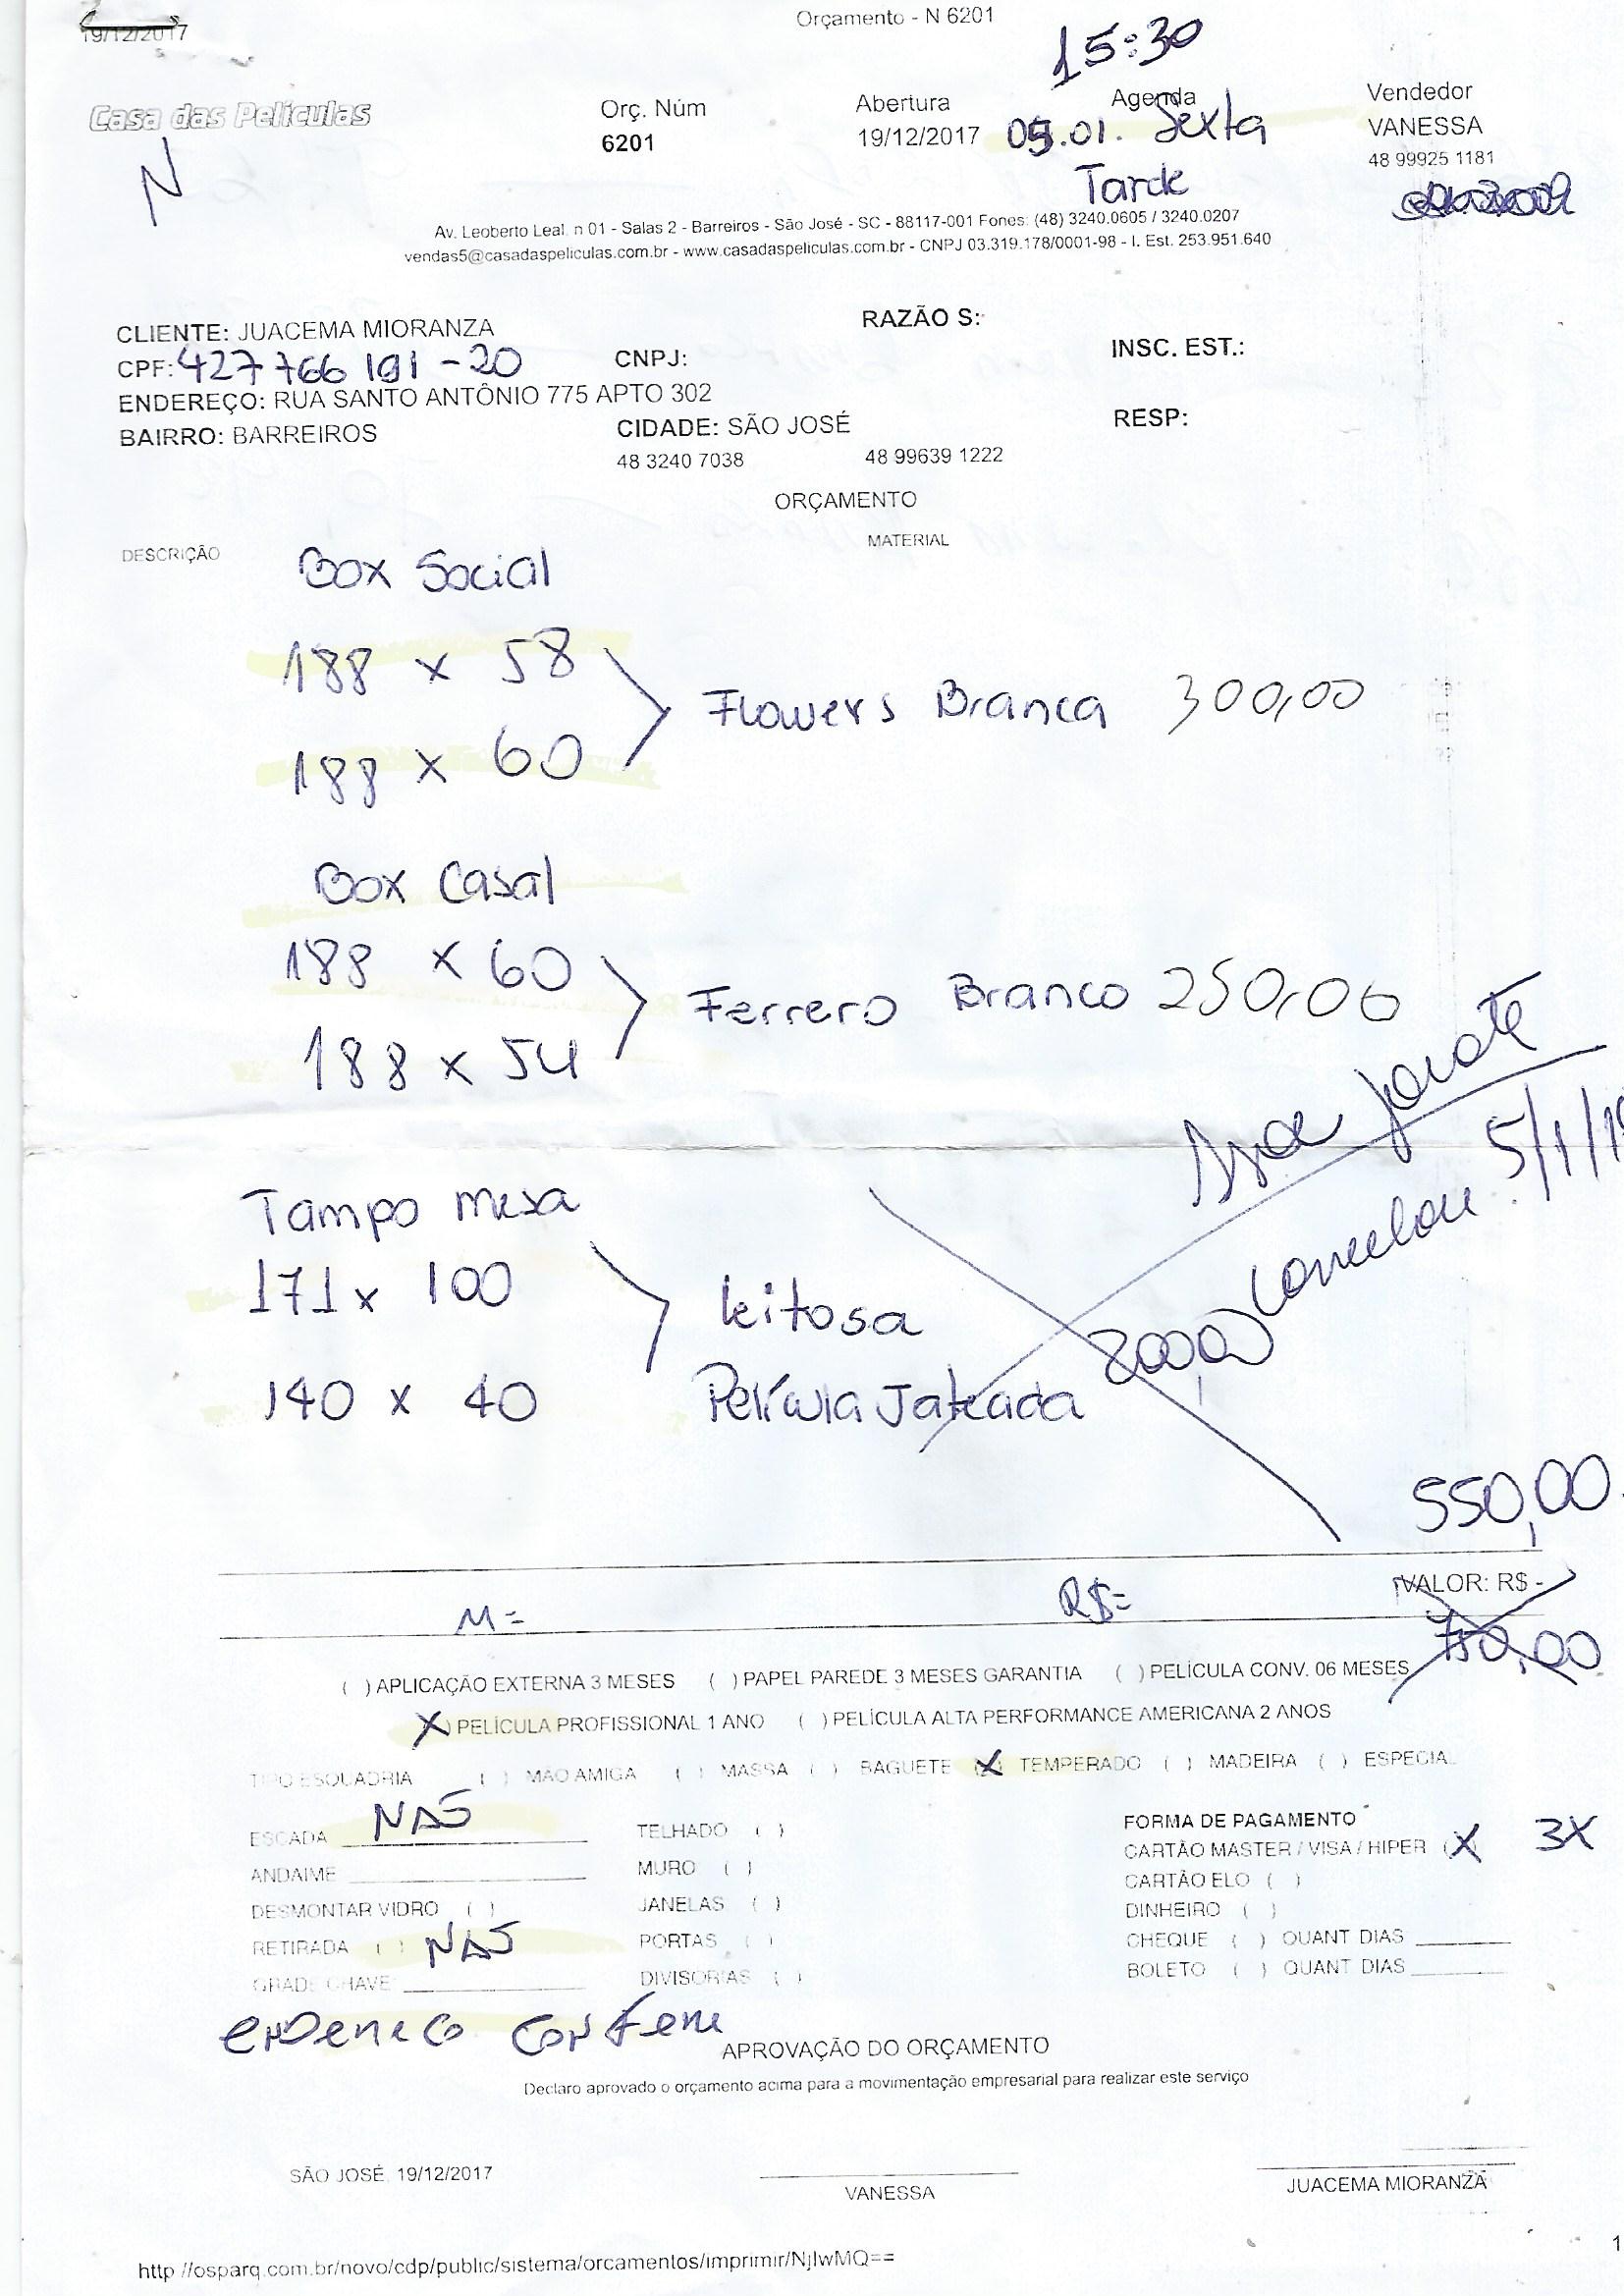 Orçamento - N 6201
19/12/2017
15:30
Casa das Películas
Orç. Núm
6201
Abertura
19/12/2017
Agenda
05.01. Sexta
Tarde
Vendedor
VANESSA
48 99925 1181
N
Av. Leoberto Leal, n 01 - Salas 2 - Barreiros - São José - SC - 88117-001 Fones: (48) 3240.0605 / 3240.0207
vendas5@casadaspeliculas.com.br - www.casadaspeliculas.com.br - CNPJ 03.319.178/0001-98 - I. Est. 253.951.640
CLIENTE: JUACEMA MIORANZA
RAZÃO S:
CPF: 427 766 191-20
CNPJ:
INSC. EST.:
ENDEREÇO: RUA SANTO ANTÔNIO 775 APTO 302
BAIRRO: BARREIROS
CIDADE: SÃO JOSÉ
RESP:
48 3240 7038
48 99639 1222
ORÇAMENTO
DESCRIÇÃO
MATERIAL
Box Social
188 x 58
Flowers Branca 300,00
188 x 60
Box Casal
188 x 60
Ferrero Branco 250,00
188 x 54
Tampo mesa
171 x 100
leitosa
140 x 40
Película Jateada 200,00
cancelou 5/1/18
550,00
VALOR: R$ -
M =
R$=
750,00
( ) APLICAÇÃO EXTERNA 3 MESES ( ) PAPEL PAREDE 3 MESES GARANTIA ( ) PELÍCULA CONV. 06 MESES
(X) PELÍCULA PROFISSIONAL 1 ANO ( ) PELÍCULA ALTA PERFORMANCE AMERICANA 2 ANOS
TIPO ESQUADRIA ( ) MÃO AMIGA ( ) MASSA ( ) BAGUETE (X) TEMPERADO ( ) MADEIRA ( ) ESPECIAL
ESCADA NAO
TELHADO ( )
FORMA DE PAGAMENTO
ANDAIME
MURO ( )
CARTÃO MASTER / VISA / HIPER (X) 3X
DESMONTAR VIDRO ( )
JANELAS ( )
CARTÃO ELO ( )
RETIRADA ( ) NAO
PORTAS ( )
DINHEIRO ( )
GRADE CHAVE
DIVISORIAS ( )
CHEQUE ( ) QUANT DIAS
BOLETO ( ) QUANT DIAS
enDeneco confene
APROVAÇÃO DO ORÇAMENTO
Declaro aprovado o orçamento acima para a movimentação empresarial para realizar este serviço
SÃO JOSÉ, 19/12/2017
VANESSA
JUACEMA MIORANZA
http://osparq.com.br/novo/cdp/public/sistema/orcamentos/imprimir/NjIwMQ==
1